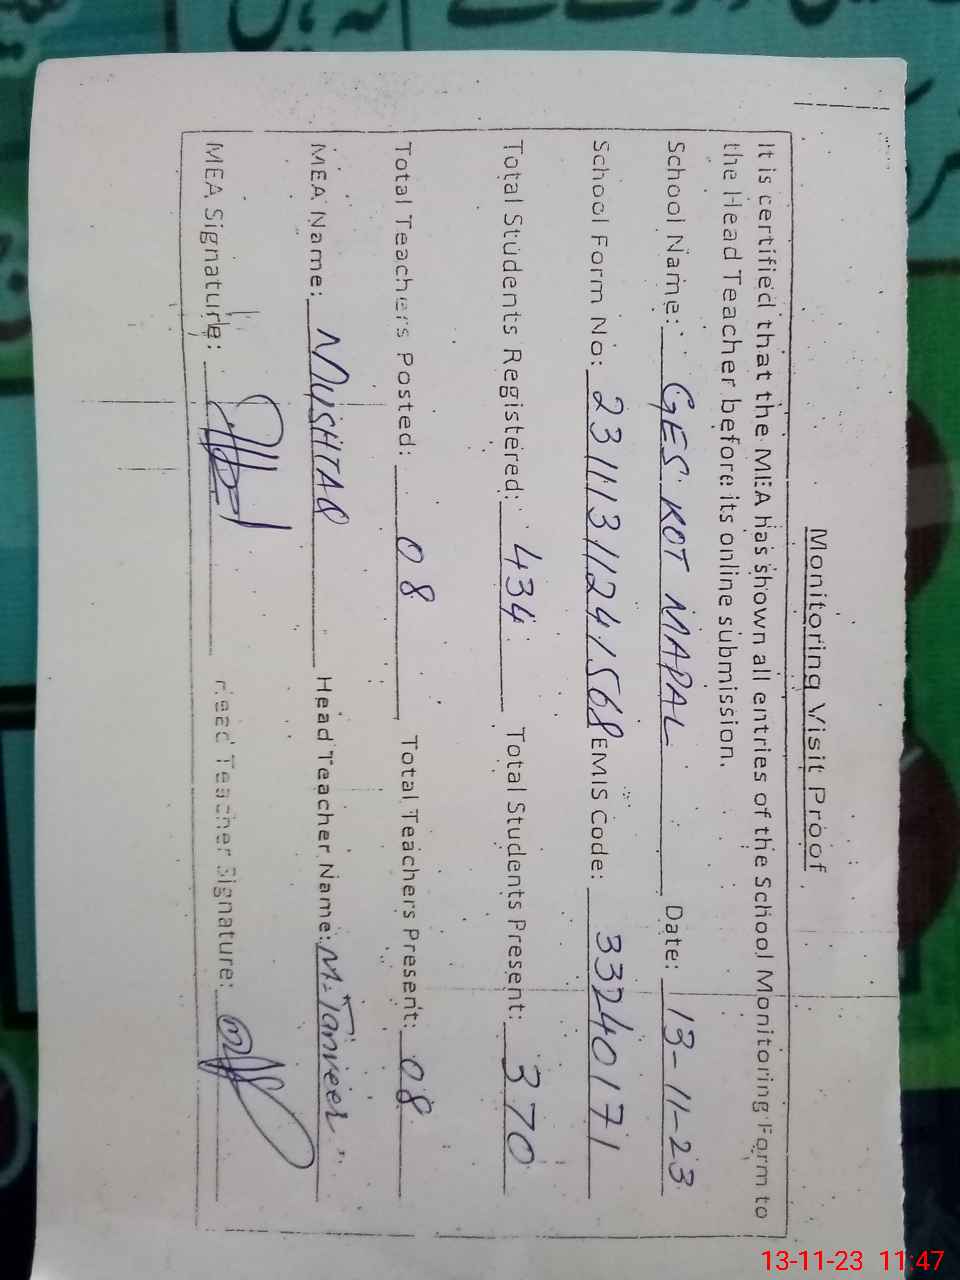 Monitoring Visit Proof
It is certified that the MEA has shown all entries of the School Monitoring Form to
the Head Teacher before its online submission.
School Name: GES KOT MAPAL Date: 13-11-23
School Form No: 23111311241568 EMIS Code: 33240171
Total Students Registered: 434 Total Students Present: 370
Total Teachers Posted: 08 Total Teachers Present: 08
MEA Name: MUSHTAQ Head Teacher Name: M. Tanveer
MEA Signature: Head Teacher Signature:
13-11-23 11:47